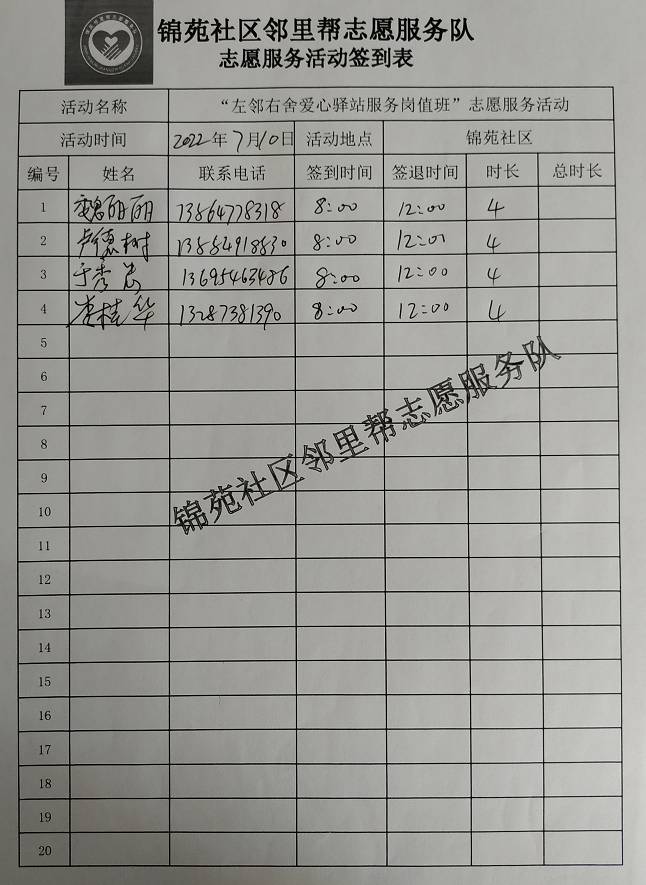 锦苑社区邻里帮志愿服务队
志愿服务活动签到表
活动名称 “左邻右舍爱心驿站服务岗值班”志愿服务活动
活动时间 2022年7月10日 活动地点 锦苑社区
编号 姓名 联系电话 签到时间 签退时间 时长 总时长
1 魏丽丽 13564778318 8:00 12:00 4
2 卢德树 8:00 12:00 4
3 于秀 13695463486 8:00 12:00 4
4 桂华 13287381390 8:00 12:00 4
5
6
7
8
9
10
11
12
13
14
15
16
17
18
19
20
锦苑社区邻里帮志愿服务队